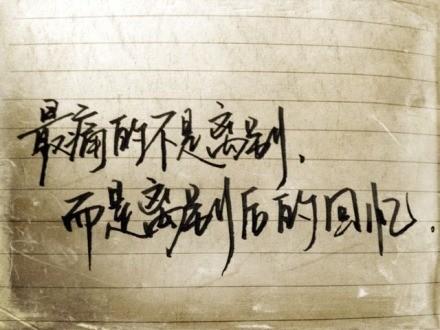 最痛的不是离别，
而是离别后的回忆.